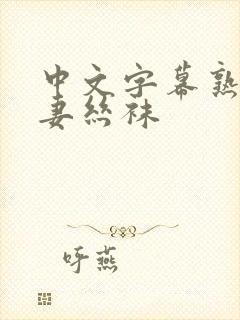 中文字幕熟
妻絲袜
吁燕